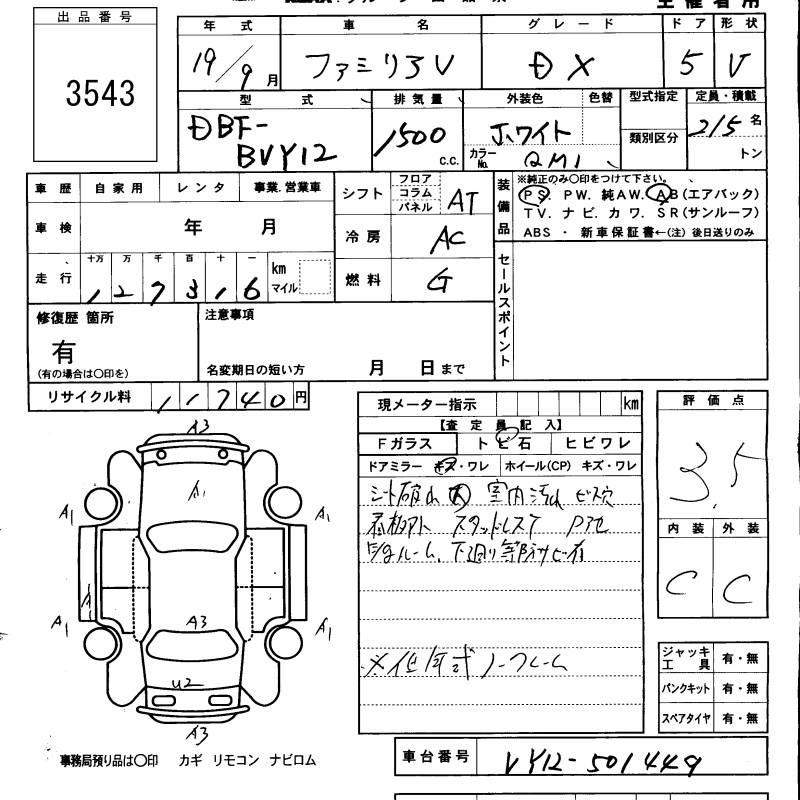 出品番号
3543
年式 車名 グレード ドア 形状
19/9月 ファミリアV DX 5 V
型式 排気量 外装色 色替 型式指定 定員・積載
DBF-BVY12 1500 C.C. ホワイト 類別区分 2/5名
カラーNo. QM1 トン
車歴 自家用 レンタ 事業.営業車
シフト フロア コラム パネル AT
装備品
※純正のみ〇印をつけて下さい。
PS. PW. 純AW. AB(エアバック)
TV. ナビ. カワ. SR(サンルーフ)
ABS ・ 新車保証書←(注) 後日送りのみ
車検 年 月
冷房 AC
走行 十万 万 千 百 十 一 km マイル
127316
燃料 G
セールスポイント
修復歴 箇所
有
(有の場合は〇印を)
注意事項
名変期日の短い方 月 日まで
リサイクル料 11740円
現メーター指示 km
【査定員記入】
Fガラス トビ石 ヒビワレ
ドアミラー キズ・ワレ ホイール(CP) キズ・ワレ
シート破れ 室内汚れ ビス穴
スタッドレス
ルーム、下廻り等 サビ有
※低年式ノークレーム
評価点
3.5
内装 外装
C C
ジャッキ工具 有・無
パンクキット 有・無
スペアタイヤ 有・無
A3
A1
A1 A1
A1
A1 A3 A1
U2
A3
事務局預り品は〇印 カギ リモコン ナビロム
車台番号 VY12-501449